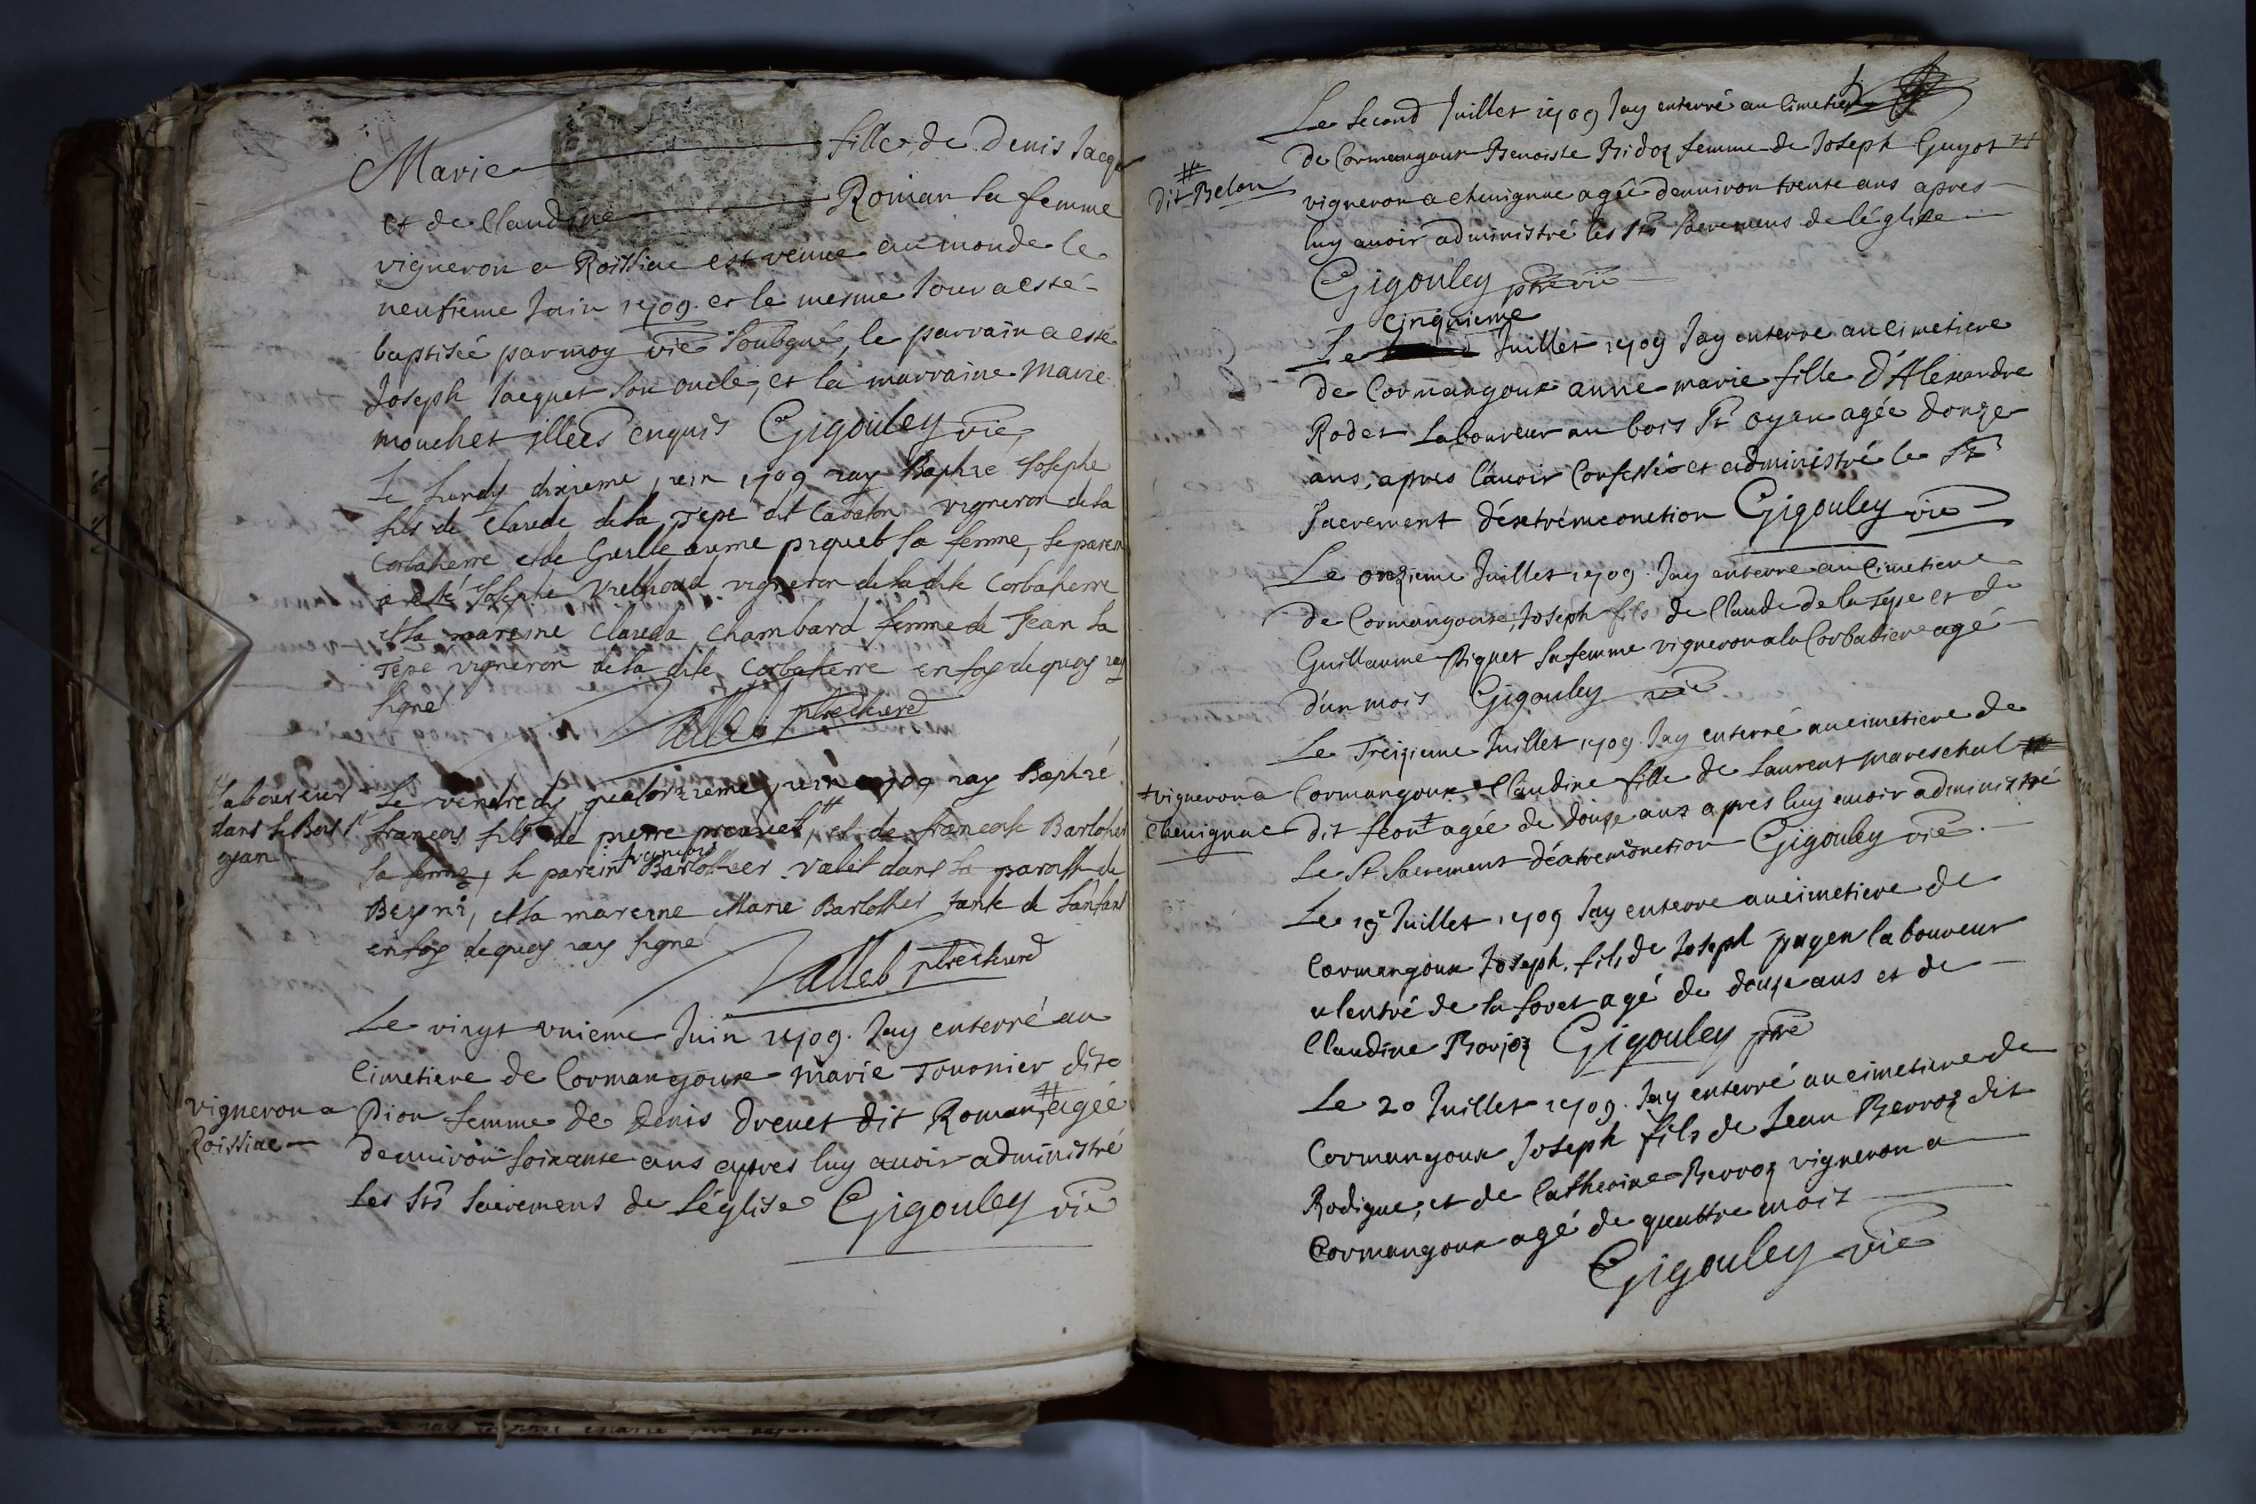 Marie fille de Denis Jacq
et de Claudine Roman sa femme
vigneron a Roissiac est venue au monde le
neufieme Juin 1709. et le mesme Jour a esté
baptisée par moy vic Soubgné, le parrain a esté
Joseph Jacquet son oncle, et la marraine Marie
mouchet illeés enquis Gigouley vic
Le Lundy dixieme juin 1709 jay Baptize Josephe
fils de Claude de la Tepe dit vigneron de la
Corbatierre et de Guille aume piquet sa femme, le parein
a esté Josephe vigneron de la dite Corbatierre
et la mareine Clauda Chambard femme de Jean la
Tepe vigneron de la dite Corbatierre en foy de quoy jay
signé
Vallet ptre cure
laboureur
dans le Bois St
oyan
Le vendredy quatorzieme juin 1709 jay Baptizé
françois fils de pierre et de francoise Bartolhet
sa femme, le parein françois Bartolheer valet dans la paroisse de
Beyni, et la mareine Marie Bartolhet tante de L'anfant
en foy de quoy jay signé
Vallet ptre cure
Le vingt unieme Juin 1709. Jay enterré au
Cimetiere de Cormangoux Marie Tournier dite
vigneron a
Roissiac
Pion femme de Denis Drevet dit Roman # agée
denuiron soixante ans apres luy auoir administré
les Sts Sacremens de L'église Gigouley vic
Le Second Juillet 1709 Jay enterré au Cimetiere
de Cormangoux Benoiste Bidoz femme de Joseph Guyot #
#
dit Belon
vigneron a Chevignac agée denuiron trente ans apres
luy auoir administré les Sts Sacremens de léglise
Gigouley ptre vic
cinquieme
Le Juillet 1709 Jay enterre au cimetiere
de Cormangoux anne marie fille d'Alexandre
Rodet Laboureur au bois St oyan agée donze
ans, apres l'auoir Confessée et administré le St
Sacrement d'éxtréme onction Gigouley vic
Le onzieme Juillet 1709. Jay enterre au Cimetiere
de Cormangoux, Joseph fils de Claude de la Tepe et de
Guillaume Piquet sa femme vigneron a la Corbatiere agé
d'un mois Gigouley vic
Le Treizieme Juillet 1709. Jay enterré au cimetiere de
Cormangoux Claudine fille de Laurent Mareschal
+ vigneron a
Chevignac
dit + agée de douze ans apres luy auoir administré
Le St Sacrement d'éxtreme onction Gigouley vic.
Le 19e Juillet 1709 Jay enterre au cimetiere de
Cormangoux Joseph, fils de Joseph pagen laboureur
a lentré de la foret agé de douze ans et de
Claudine Borjoz Gigouley ptre
Le 20 Juillet 1709. Jay enterré au cimetiere de
Cormangoux Joseph fils de Jean Berroz dit
Rodigue, et de Catherine Berroz vigneron a
Cormangoux agé de quattre mois
Gigouley vic